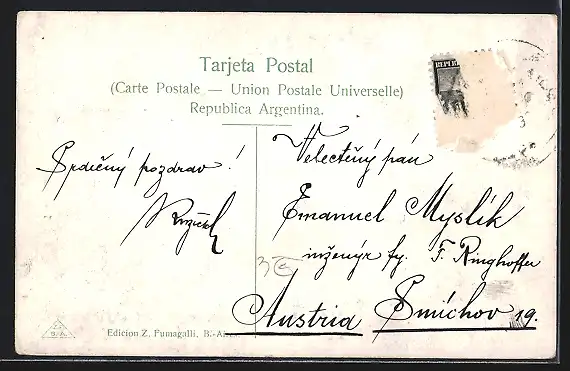 Tarjeta Postal
(Carte Postale — Union Postale Universelle)
Republica Argentina.
REPUB
Srdečný pozdrav!
Velectěný pán
Emanuel Myslík
inženýr fy. F. Ringhoffer
Austria Smíchov 19.
S.A.
Edicion Z. Fumagalli, B.-Aires